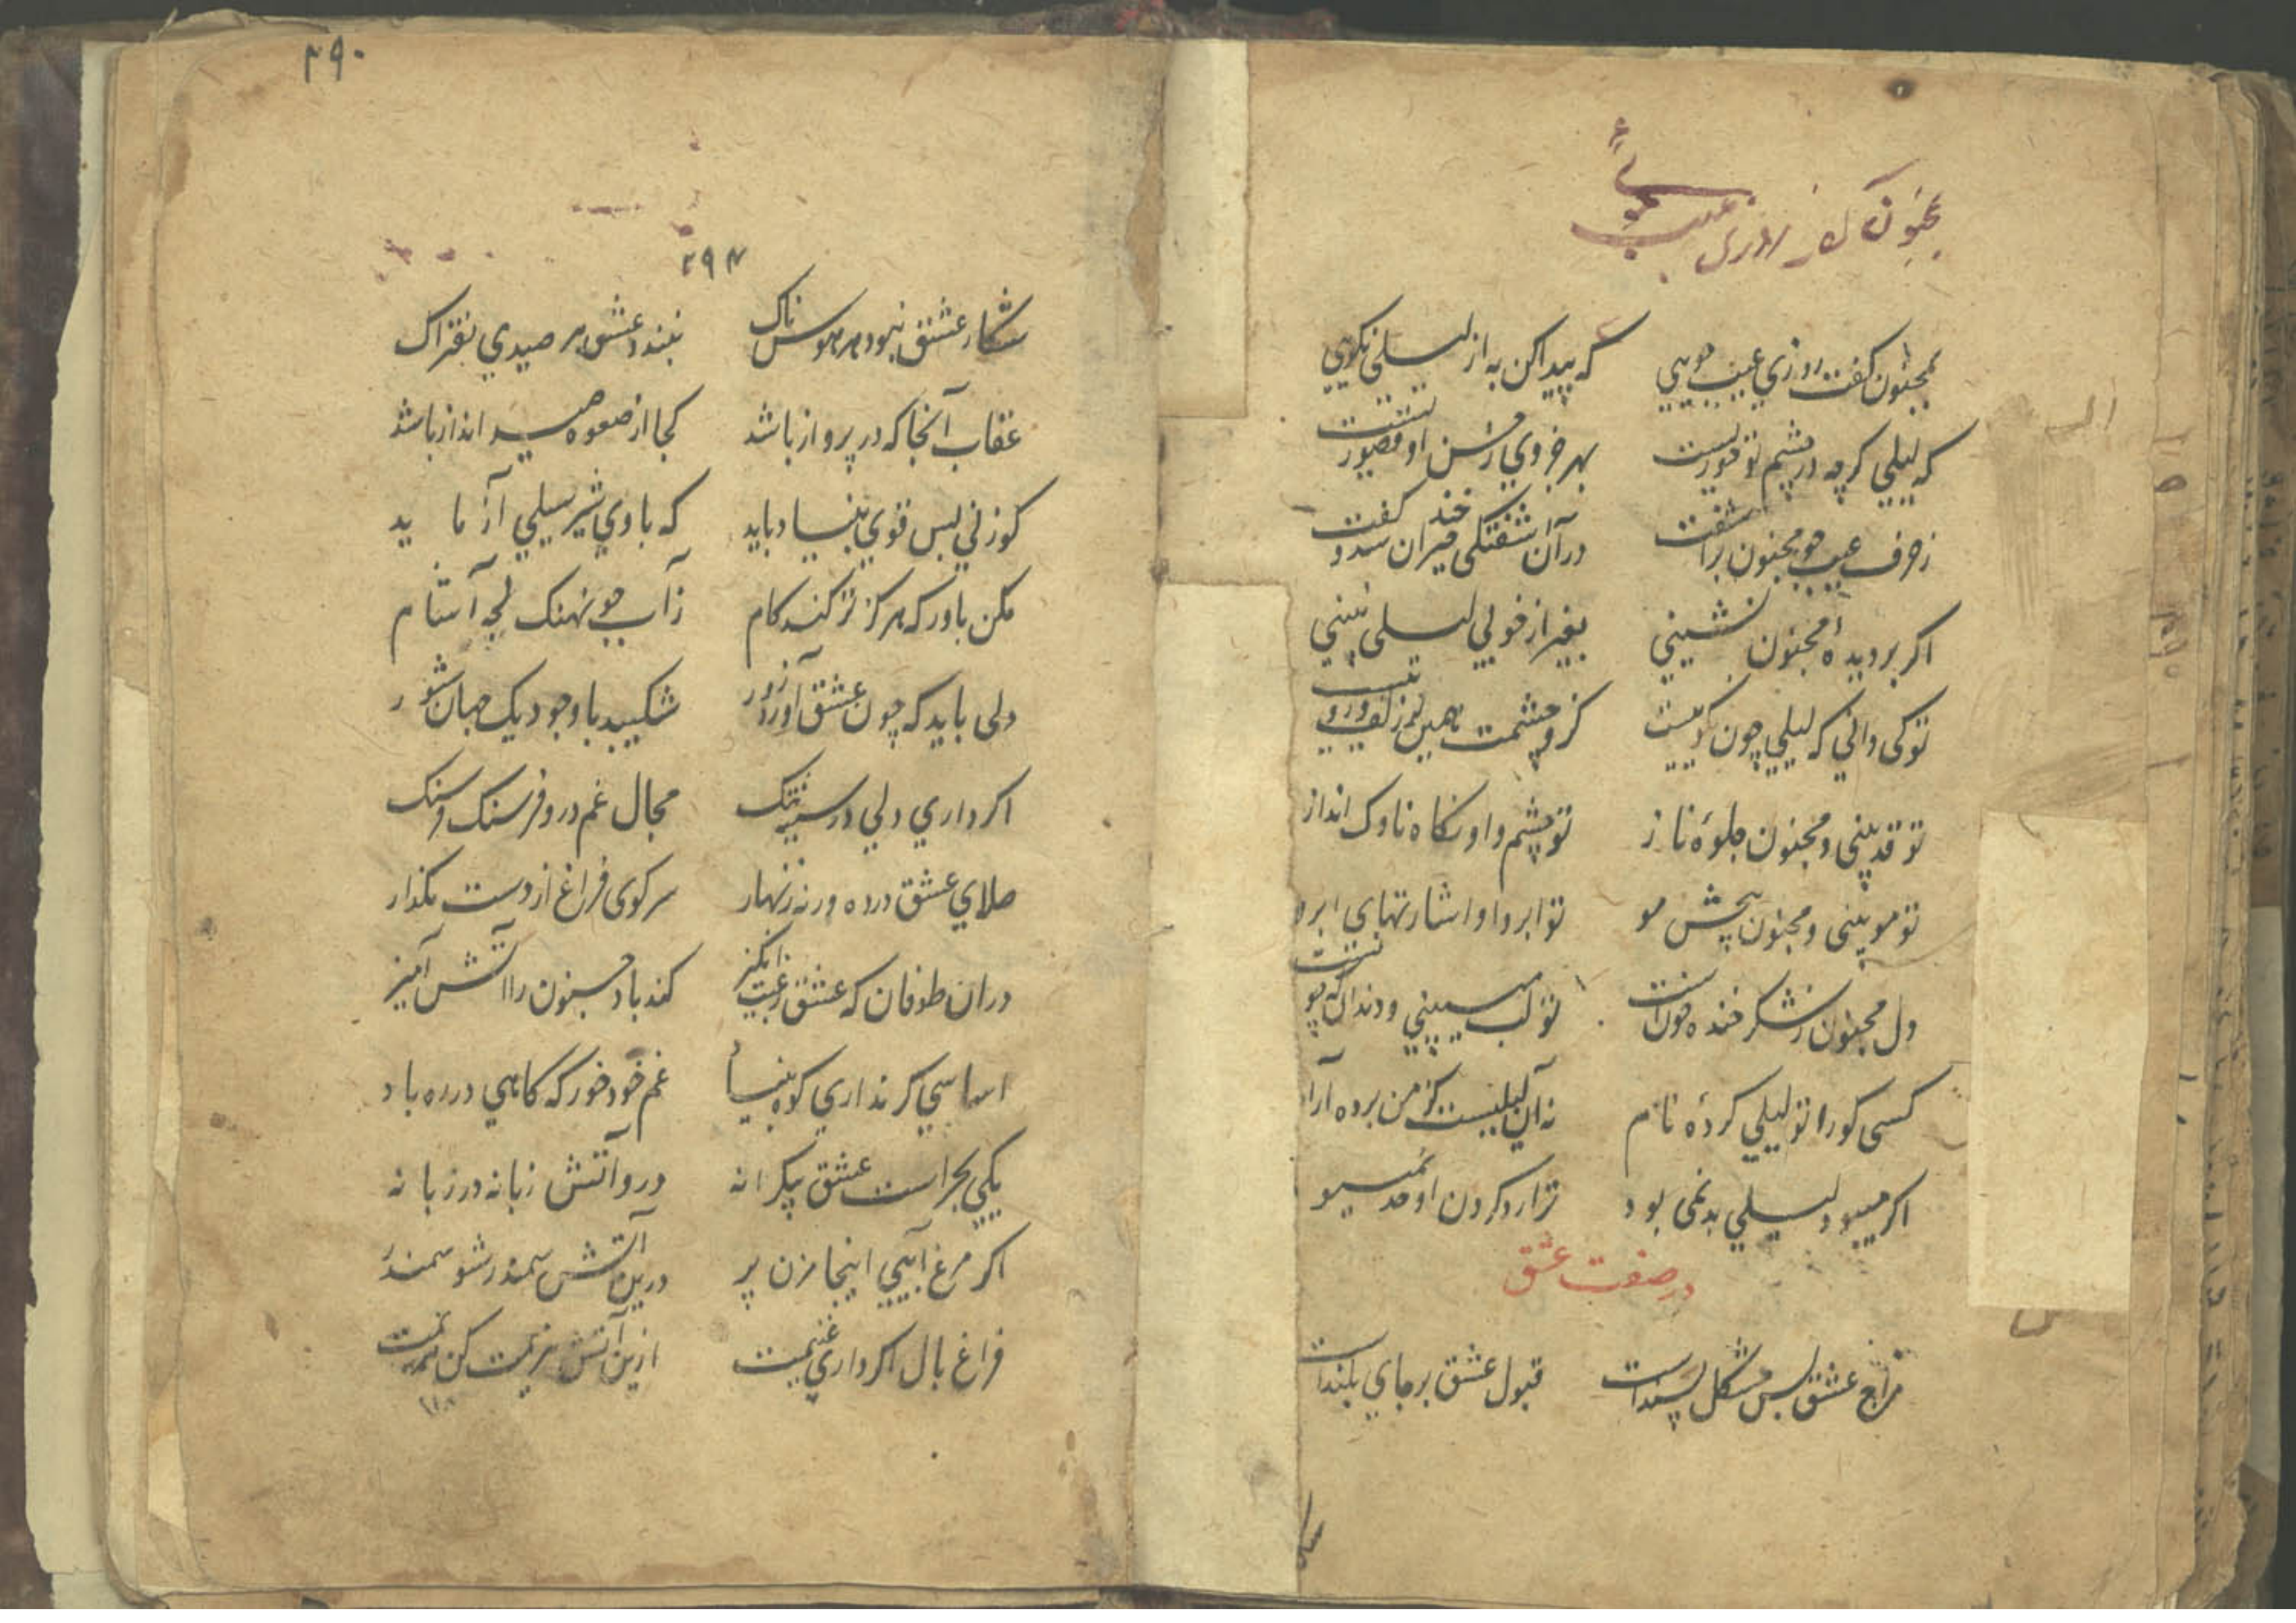 بمجنون کفت روزي عیب جویي که پیدا کن به از لیلی نکویي
که لیلي کرچه در چشم تو حوریست بهر جزوي ز حسن او قصوریست
ز حرف عیب جو مجنون برآشفت در آن آشفتکی خندان شد و کفت
اکر بر دیدهٔ مجنون نشیني بغیر از خوبي لیلی نبیني
تو کی داني که لیلي چون نکوییست کزو چشمت همین بر زلف و روییست
تو قد بینی و مجنون جلوهٔ ناز تو چشم و او نکاه ناوک انداز
تو مو بینی و مجنون پیچش مو تو ابرو او اشارتهای ابرو
دل مجنون ز شکر خنده خونست تو لب میبیني و دندان که چونست
کسی کورا تو لیلي کردهٔ نام نه آن لیلیست کز من برده آرام
اکر میبود لیلي بد نمی بود ترا رد کردن او حد نمیبود
در صفت عشق
مزاج عشق بس مشکل پسند است قبول عشق بر جاي بلند است
۲۹۰
۲۹۴
شکار عشق نبود هر هوسناک نبندد عشق هر صیدي بفتراک
عقاب آنجا که در پرواز باشد کجا از صعوه صید انداز باشد
کوزني بس قوي بنیاد باید که با وي شیر سیلي آزماید
مکن باور که هرکز تر کند کام ز آب جو نهنک لجه آشام
دلی باید که چون عشق آورد زور شکیبد با وجود یک جهان شور
اکر داري دلي در سینه تنک مجال غم درو فرسنک فرسنک
صلاي عشق در ده ورنه زنهار سر کوی فراغ از دست مکذار
در ان طوفان که عشق آتش انکیز کند باد جنون را آتش آمیز
اساسي کر نداري کوه بنیاد غم خود خور که کاهي در ره باد
یکي بحر است عشق بیکرانه درو آتش زبانه در زبانه
اکر مرغ آبیي اینجا مزن پر درین آتش سمندر شو سمندر
فراغ بال اکر داري غنیمت ازین آتش هزیمت کن هزیمت